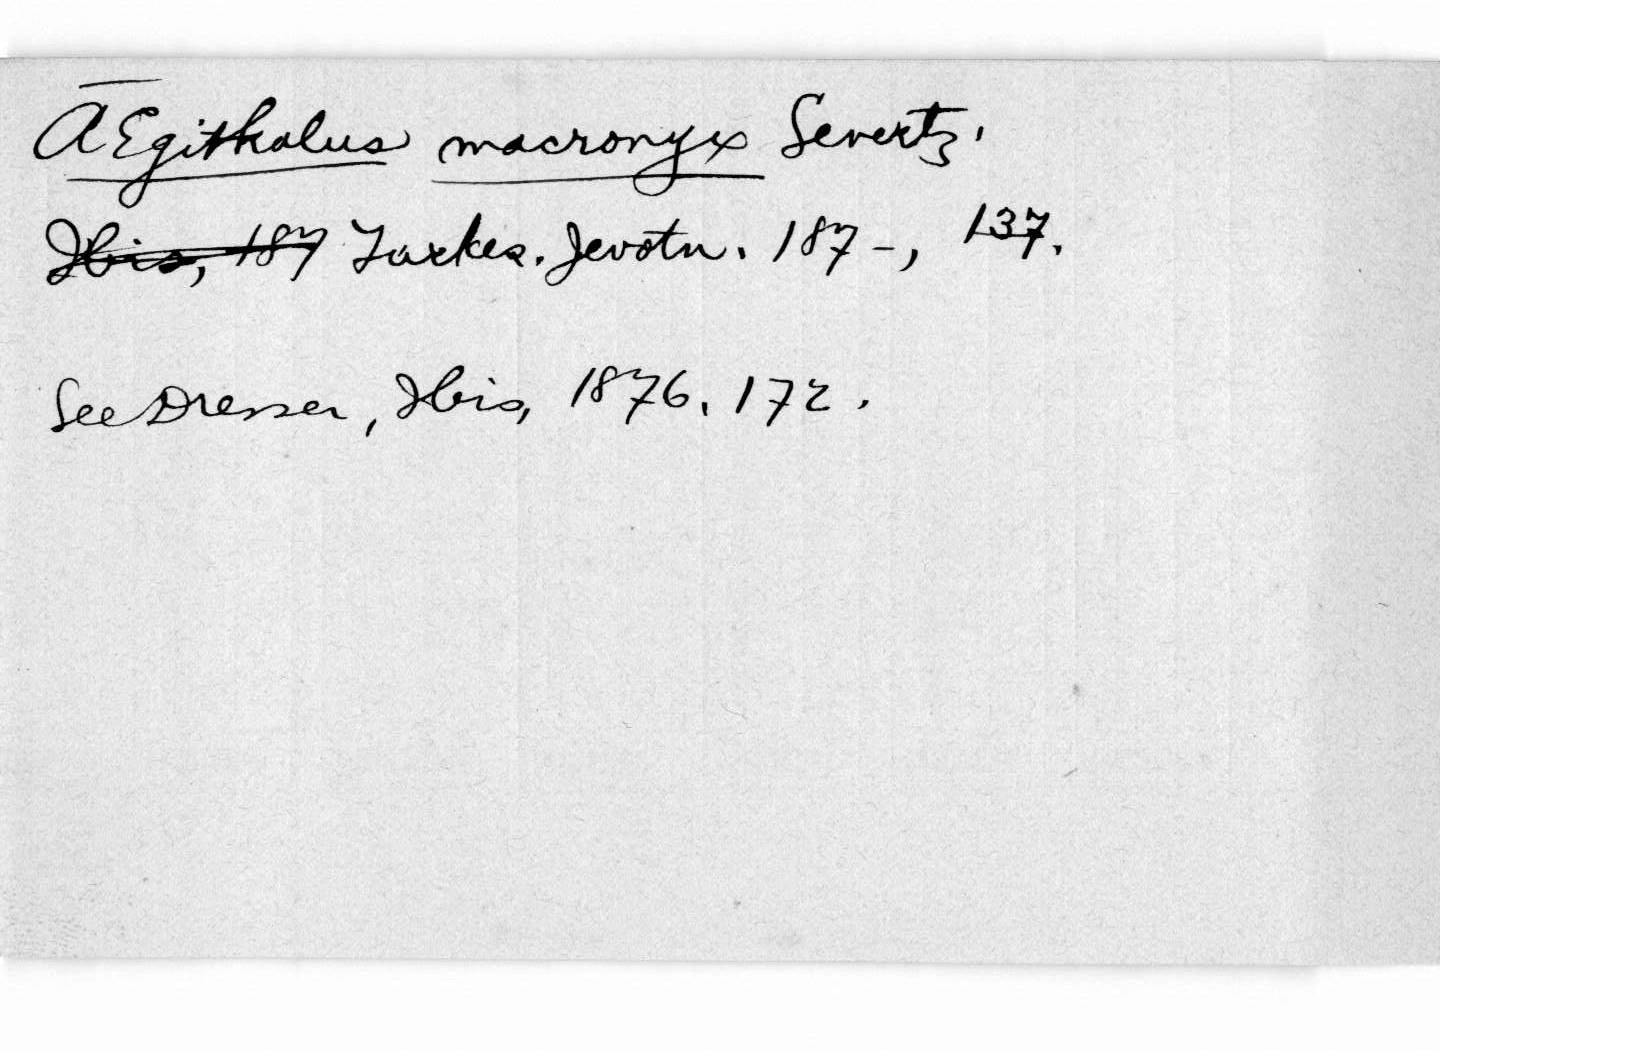 AEgithalus macronyx Severtz.
Ibis, 187 Turkes. Jevotn. 187-, 137.
See Dresser, Ibis, 1876, 172.